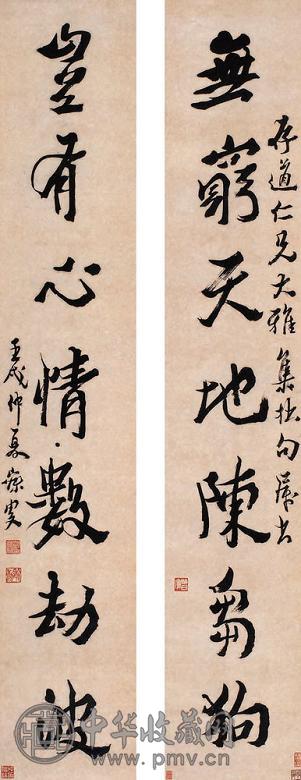 無窮天地陳芻狗
存道仁兄大雅集句屬書
豈有心情數劫波
壬戌仲夏叟
中华收藏网
www.pmv.cn